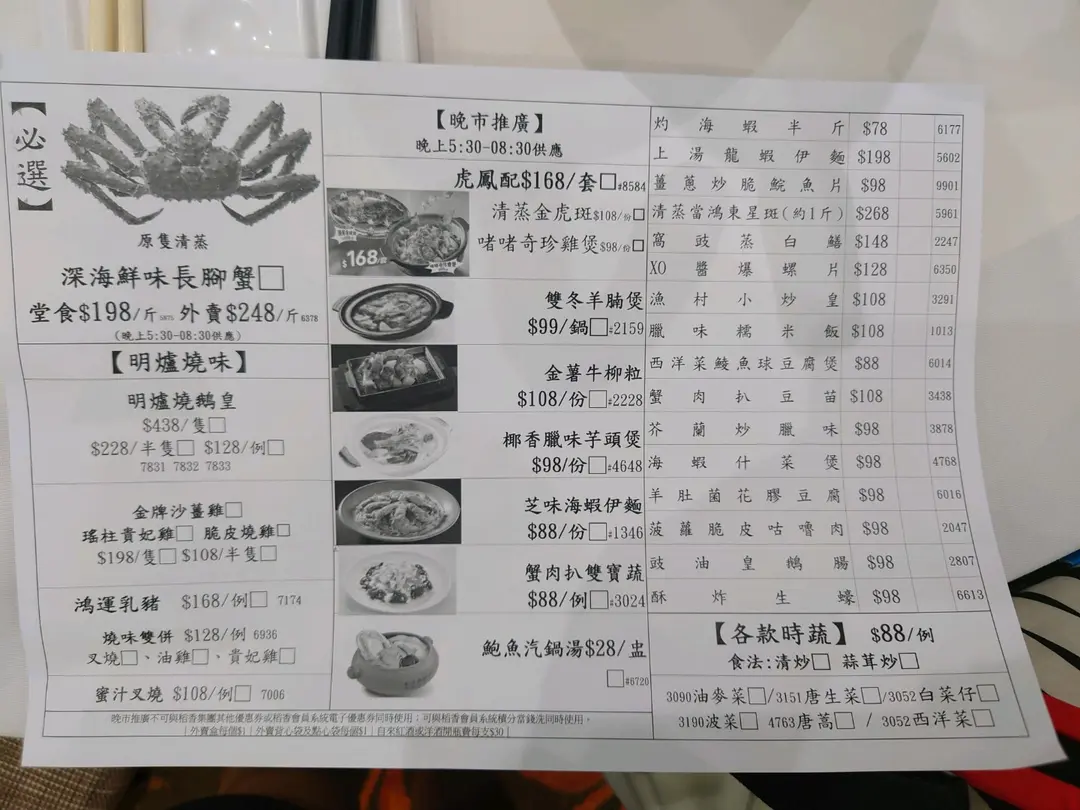 【必選】
原隻清蒸
深海鮮味長腳蟹□
堂食$198/斤 5875 外賣$248/斤 6378
(晚上5:30-08:30供應)
【明爐燒味】
明爐燒鵝皇
$438/隻□
$228/半隻□ $128/例□
7831 7832 7833
金牌沙薑雞□
瑤柱貴妃雞□ 脆皮燒雞□
$198/隻□ $108/半隻□
鴻運乳豬 $168/例□ 7174
燒味雙併 $128/例 6936
叉燒□、油雞□、貴妃雞□
蜜汁叉燒 $108/例□ 7006
【晚市推廣】
晚上5:30-08:30供應
虎鳳配$168/套□#8584
清蒸金虎斑$108/份□
啫啫奇珍雞煲$98/份□
$168/套
雙冬羊腩煲
$99/鍋□#2159
金薯牛柳粒
$108/份□#2228
椰香臘味芋頭煲
$98/份□#4648
芝味海蝦伊麵
$88/份□#1346
蟹肉扒雙寶蔬
$88/例□#3024
鮑魚汽鍋湯$28/盅
□#6720
灼海蝦半斤 $78 6177
上湯龍蝦伊麵 $198 5602
薑蔥炒脆鯇魚片 $98 9901
清蒸當鴻東星斑(約1斤) $268 5961
窩豉蒸白鱔 $148 2247
XO醬爆螺片 $128 6350
漁村小炒皇 $108 3291
臘味糯米飯 $108 1013
西洋菜鯪魚球豆腐煲 $88 6014
蟹肉扒豆苗 $108 3438
芥蘭炒臘味 $98 3878
海蝦什菜煲 $98 4768
羊肚菌花膠豆腐 $98 6016
菠蘿脆皮咕嚕肉 $98 2047
豉油皇鵝腸 $98 2807
酥炸生蠔 $98 6613
【各款時蔬】 $88/例
食法:清炒□ 蒜茸炒□
3090油麥菜□/3151唐生菜□/3052白菜仔□
3190波菜□ 4763唐蒿□ / 3052西洋菜□
晚市推廣不可與稻香集團其他優惠券或稻香會員系統電子優惠券同時使用；可與稻香會員系統積分當錢洗同時使用。
| 外賣盒每個$1 | 外賣背心袋及點心袋每個$1 | 自來紅酒或洋酒開瓶費每支$30 |